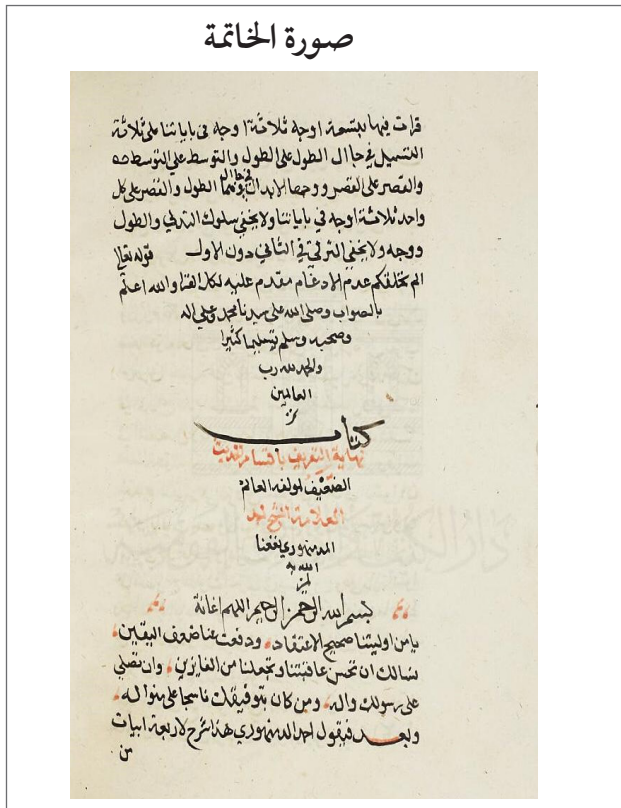 صورة الخاتمة
قرات فيها بتسعة اوجه ثلاثة اوجه في باياتنا على ثلاثة
التسهيل في حال الطول على الطول والتوسط على التوسط
والقصر على القصر ووجها الابدال الطول والقصر على كل
واحد ثلاثة اوجه في باياتنا ولا يخفى سلوك التدلي والطول
ووجه ولا يخفى الترقي في الثاني دون الاول قوله تعالى
الم نخلقكم عدم الادغام مقدم عليه لكل القراء والله اعلم
بالصواب وصلى الله على سيدنا محمد وعلى اله
وصحبه وسلم تسليما كثيرا
والحمد لله رب
العالمين
كتاب
نهاية التعريف باقسام الحديث
الضعيف لمولفه العالم
العلامة الشيخ احمد
الدمنهوري نفعنا
الله به
بسم الله الرحمن الرحيم اللهم اعانة
يا من اوليتنا صحيح الاعتقاد ودفعت عنا ضعف اليقين
نسالك ان تحسن عاقبتنا وتجعلنا من الفايزين وان تصلي
على رسولك واله ومن كان بتوفيقك ناسجا على منواله
وبعد فيقول احمد الدمنهوري هذا شرح لاربعة ابيات
من